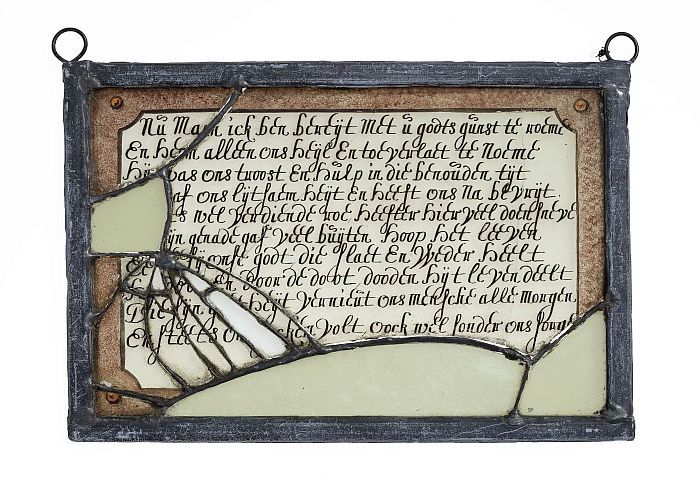 Nŭ Mach ick ben bereÿt Met ŭ godts gŭnst te roeme
En hem alleen ons heÿl En toeverlaet te Noeme
Hÿ was ons troost En hŭlp in die benouden tÿt
gaf ons lÿtsaem heÿt En heeft ons Na bevrÿt
wel verdiende roe heefter hier veel doen sneve
zÿn genade gaf veel bŭÿten Hoop het leeven
godt die Slaet En Weder heelt
En door de doot dooden hÿt leven deelt
Die zÿn heÿt vernieŭt ons mensche alle morgen
En volt oock wel sonder ons sorge